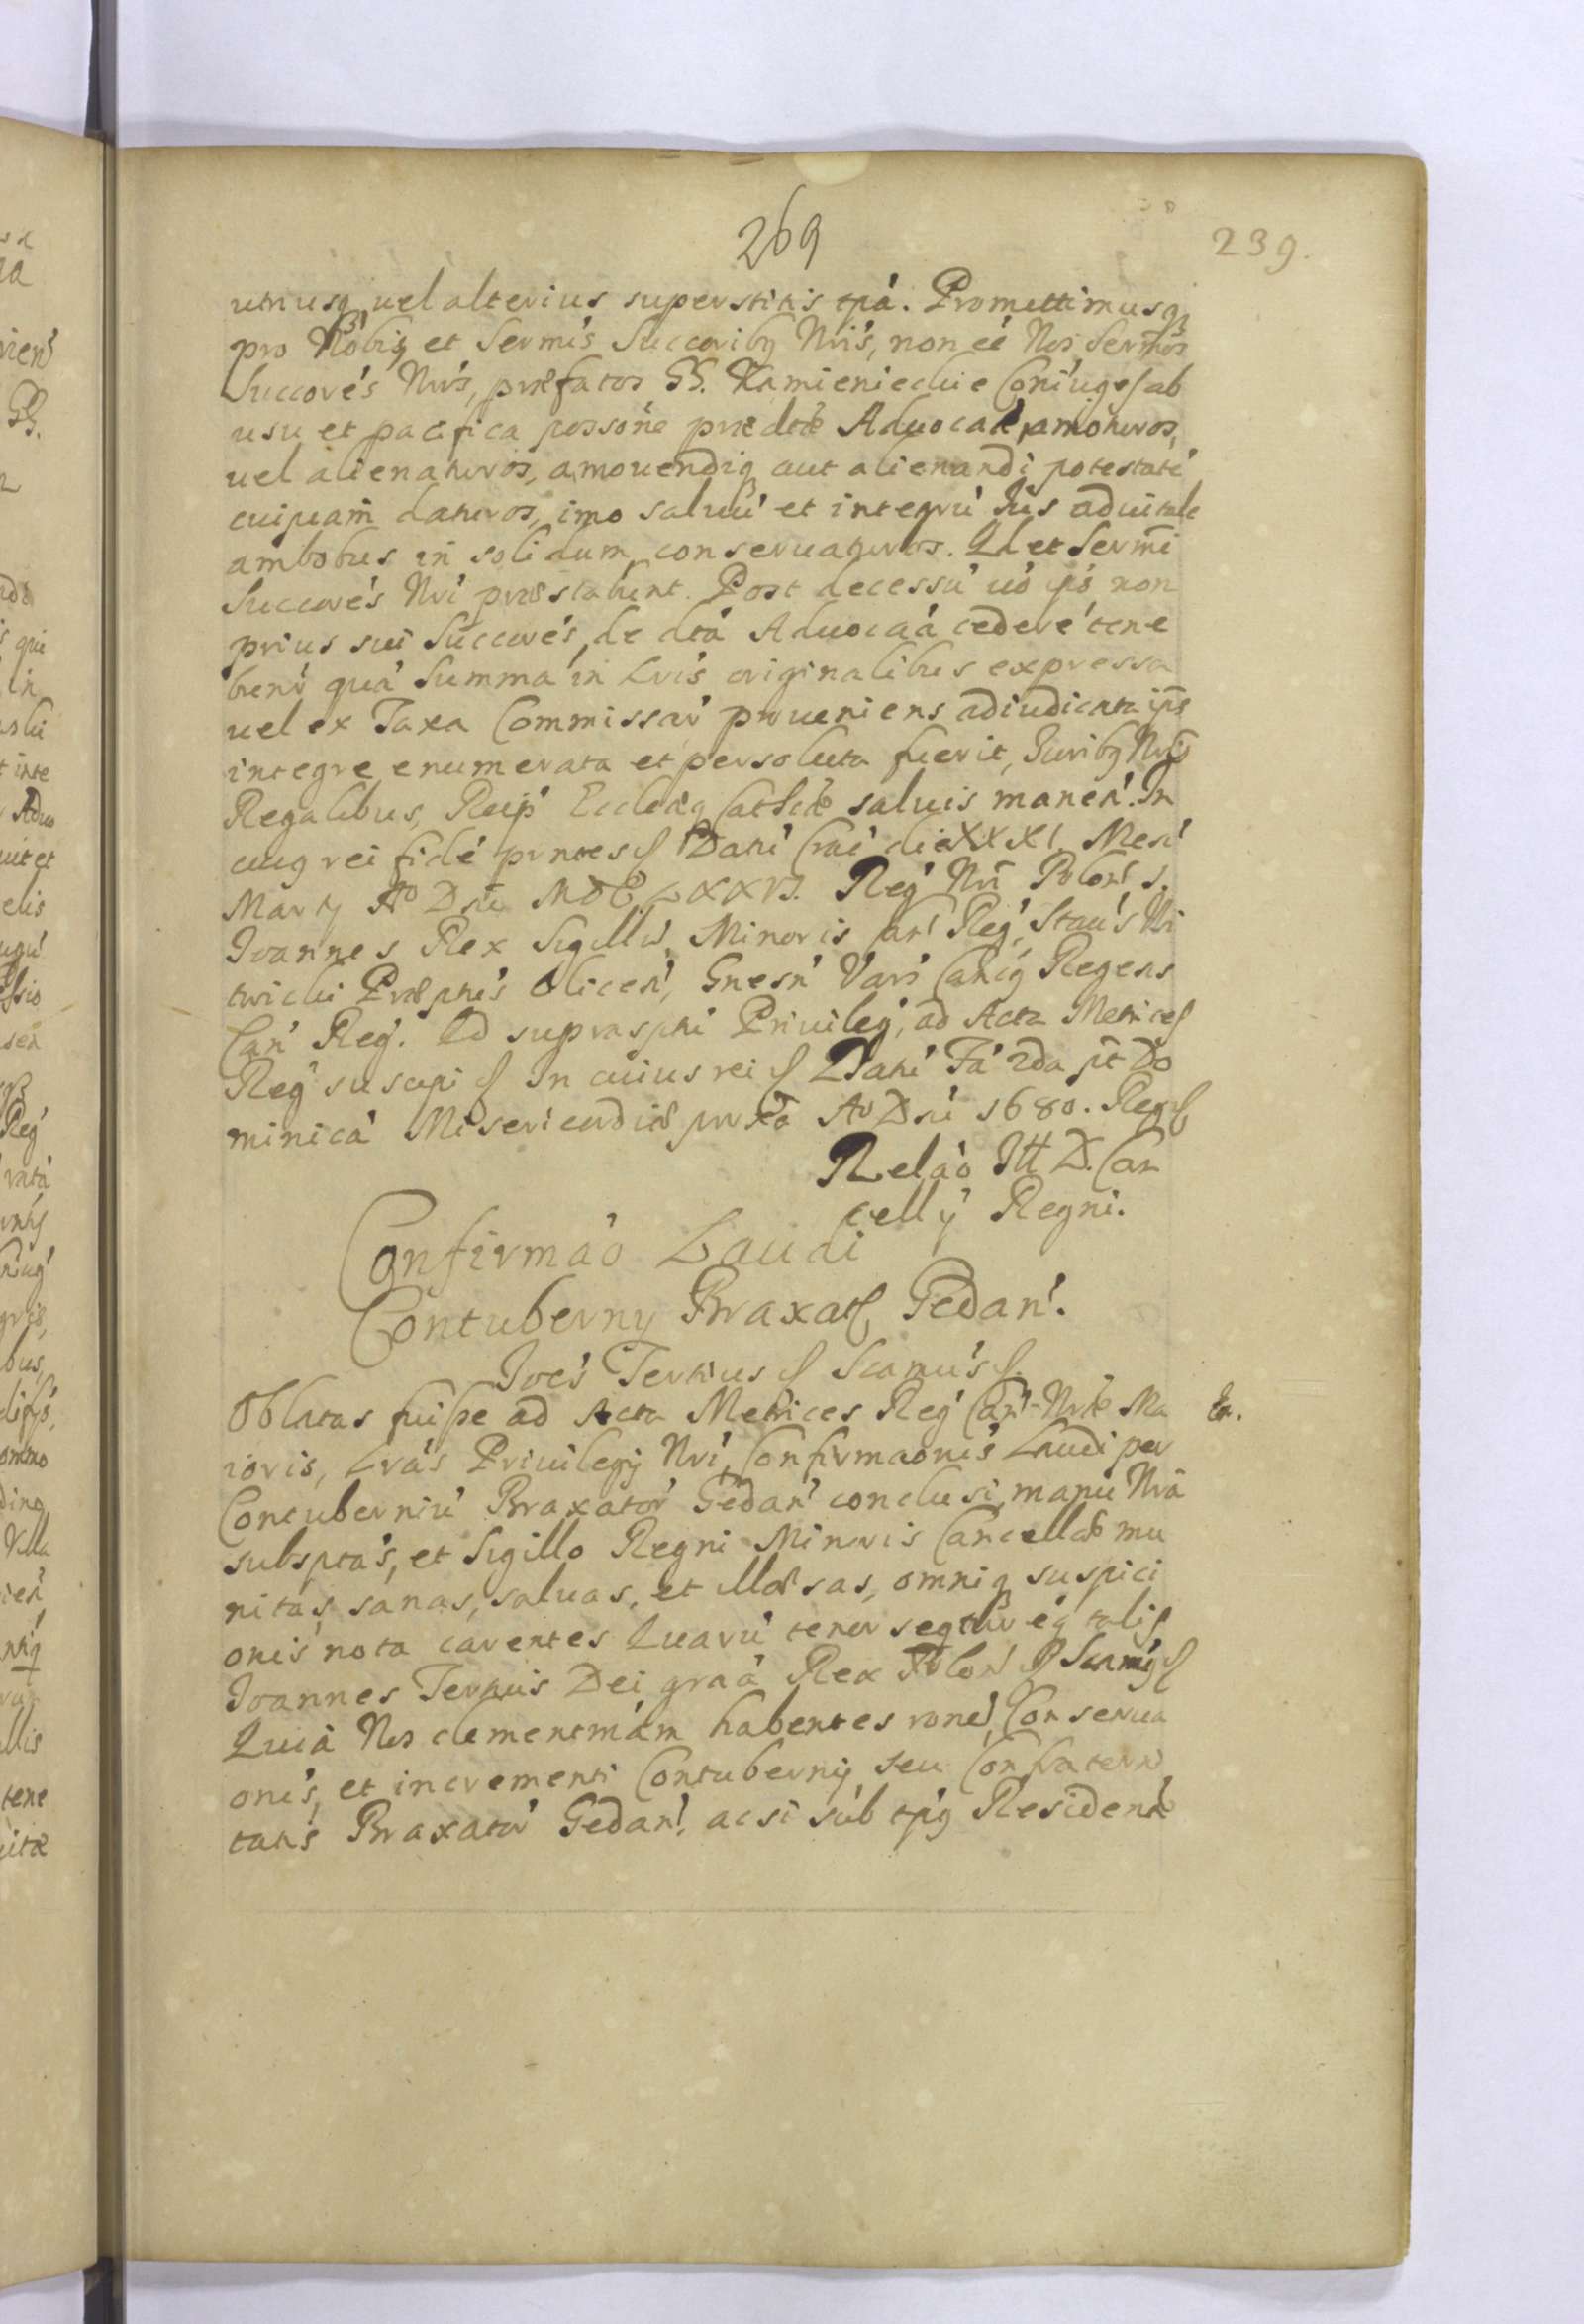 269
239.
utriusq, vel alterius superstitis tpá. Promittimusq,
pro Nobis et Sermis Succoribq Nris, non ee Nos Sermos
Succorés Nros, præfatos GG. Kamienieckie Coniuges ab
usu et pacifica possone prædtæ Advocae, amoturos,
vel alienaturos, amovendiq aut alienandi potestaté
cuipiam daturos, imo salvú et integrú Ius advitale
ambobus in solidum conservaturos. Qd et Sermi
Succorés Nri præstabunt. Post decessú vó ipó non
prius sui Succorés, de dtá Advocaá cedere tene
bunr quá Summa in Lris originalibus expressa
vel ex Taxa Commissar proveniens adiudicata ips
integre enumerata et persoluta fuerit, Juribq Nris
Regalibus, Reip Eccleæq Catholcæ salvis manen. In
cuiq rei fidé prntes Dató Crac die XXXI. Mens
Martij Ao Dni MDCLXXVI. Reg Nri Polon
Joannes Rex Sigillú Minoris Can Reg, Staus
Præptus Olicen, Gnesn Vars Canoq Regens
Can Reg. Ad suprasptú Privileg, ad Acta Metrices
Reg suscepi In cuius rei Datú Fa 2da pt Do
minicá Misericordiæ proxa Ao Dni 1680. Reg
Relao Itt D. Can
cellÿ Regni.
Confirmao Laudi
Contuberny Braxat Gedan.
Joes Tertius Scamus
Oblatas fuisse ad Acta Metrices Reg Can Nræ Ma
ioris, Lras Privilegÿ Nri, Confirmaonis Laudi per
Contuberniú Braxator Gedan conclusi, manu Nrá
subsptas, et Sigillo Regni Minoris Cancellæ mu
nitas, sanas, salvas, et illæsas, omniq suspici
onis nota carentes Quarú tenor seqtur eq talis
Joannes Tertius Dei graá Rex Polon Scamus
Quia Nos clementmam habentes roné Conserva
onis, et incrementi Contubernÿ seu Confraterni
tatis Braxator Gedan, ac si sub tpq Residentæ